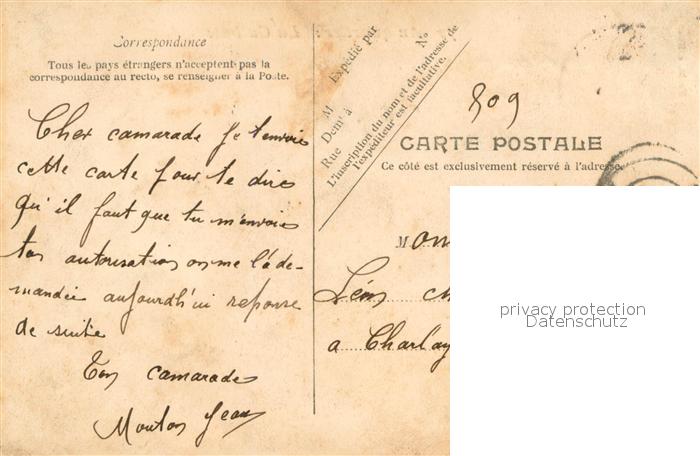 Correspondance
Tous les pays étrangers n'acceptent pas la
correspondance au recto, se renseigner à la Poste.
Cher camarade je t'envoie
cette carte pour te dire
qu'il faut que tu m'envoies
ton autorisation on me l'a de-
mandée aujourdh'ui reponse
de suite
Ton camarade
Mouton Jean
Expédié par
M
Nº
Demt à
Rue
L'inscription du nom et de l'adresse de
l'expéditeur est facultative.
809
CARTE POSTALE
Ce côté est exclusivement réservé à l'adresse.
Mon
Léon
a Charlay
privacy protection
Datenschutz